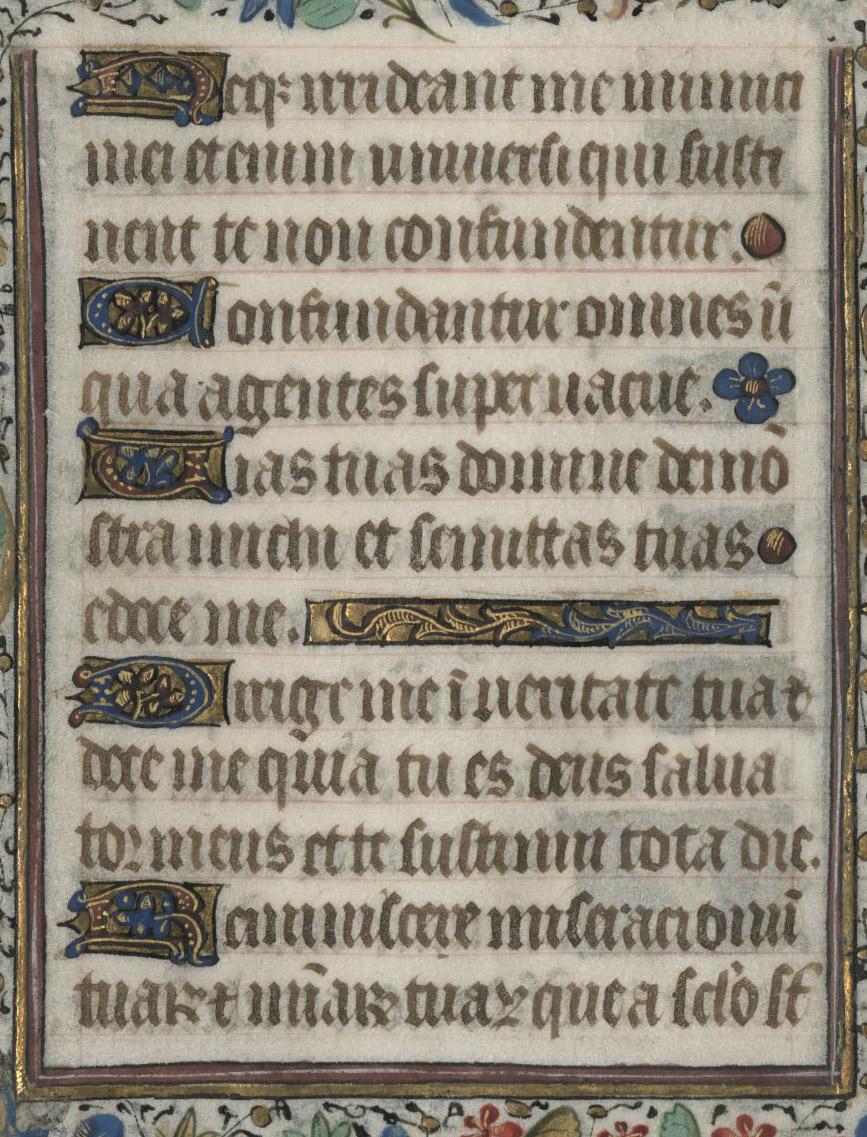 Neq₃ irrideant me inimici
mei etenim universi qui susti
nent te non confundentur.
Confundantur omnes iī
qua agentes super vacue.
Vias tuas domine demō
stra michi et semittas tuas
edoce me.
Dirige me ī veritate tua ⁊
doce me quia tu es deus salva
tor meus et te sustinui tota die.
Reminiscere miseracionū
tuaꝝ ⁊ mīaꝝ tuaꝝ que a sclo st